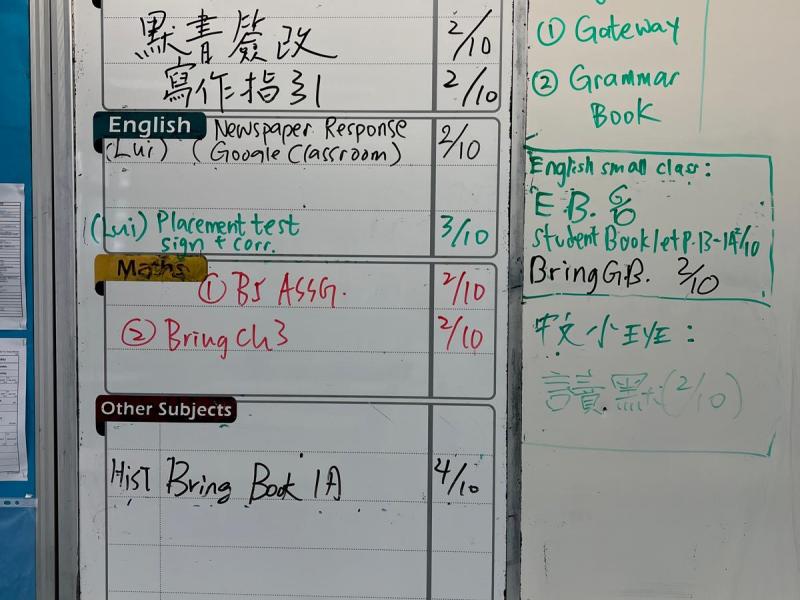 默書簽改 2/10
寫作指引 2/10
English
Newspaper Response 2/10
(Lui) (Google Classroom)
(Lui) Placement test 3/10
sign + corr.
Maths
① B5 ASSG. 2/10
② Bring Ch3 2/10
Other Subjects
HIST Bring Book 1A 4/10
① Gateway
② Grammar
Book
English small class:
E.B. 6/10
Student Booklet P.13-14 2/10
Bring G.B. 2/10
中文小
讀默 (2/10)